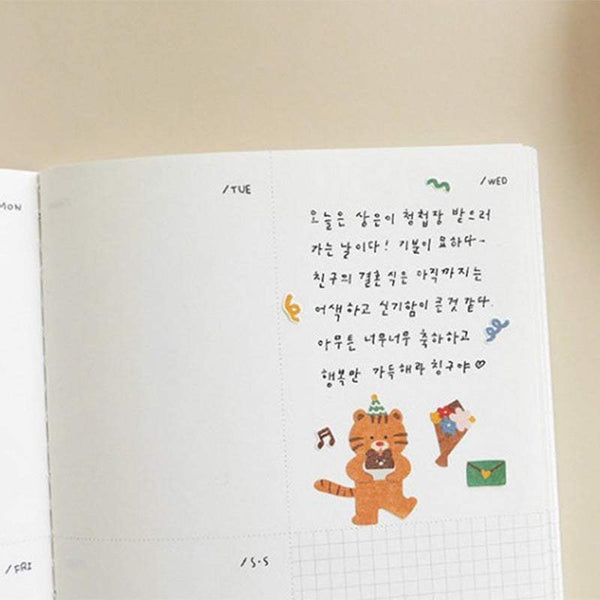 MON
/TUE
/WED
오늘은 상은이 청첩장 받으러
가는 날이다! 기분이 묘하다~
친구의 결혼식은 아직까지는
어색하고 신기함이 큰것 같다.
아무튼 너무너무 축하하고
행복만 가득해라 친구야♡
/FRI
/S·S